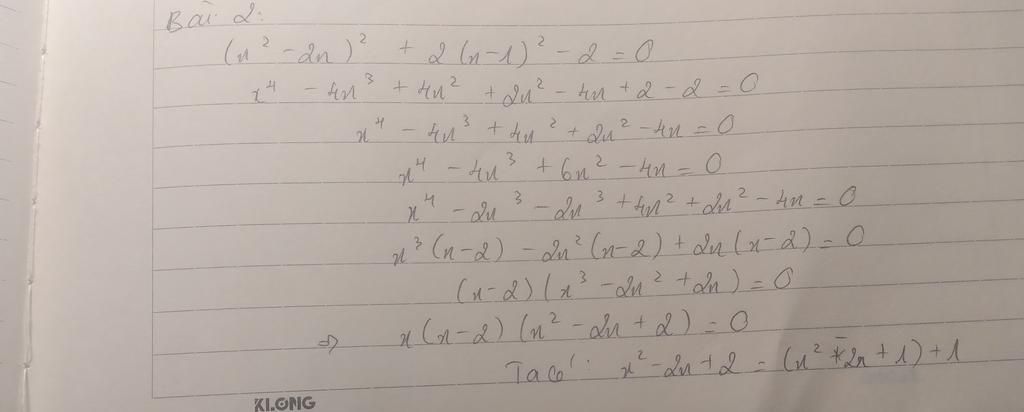 Bài 2:
(x² - 2x)² + 2(x-1)² - 2 = 0
x⁴ - 4x³ + 4x² + 2x² - 4x + 2 - 2 = 0
x⁴ - 4x³ + 4x² + 2x² - 4x = 0
x⁴ - 4x³ + 6x² - 4x = 0
x⁴ - 2x³ - 2x³ + 4x² + 2x² - 4x = 0
x³(x-2) - 2x²(x-2) + 2x(x-2) = 0
(x-2)(x³ - 2x² + 2x) = 0
⇒ x(x-2)(x² - 2x + 2) = 0
Ta có: x² - 2x + 2 = (x² - 2x + 1) + 1
KLONG